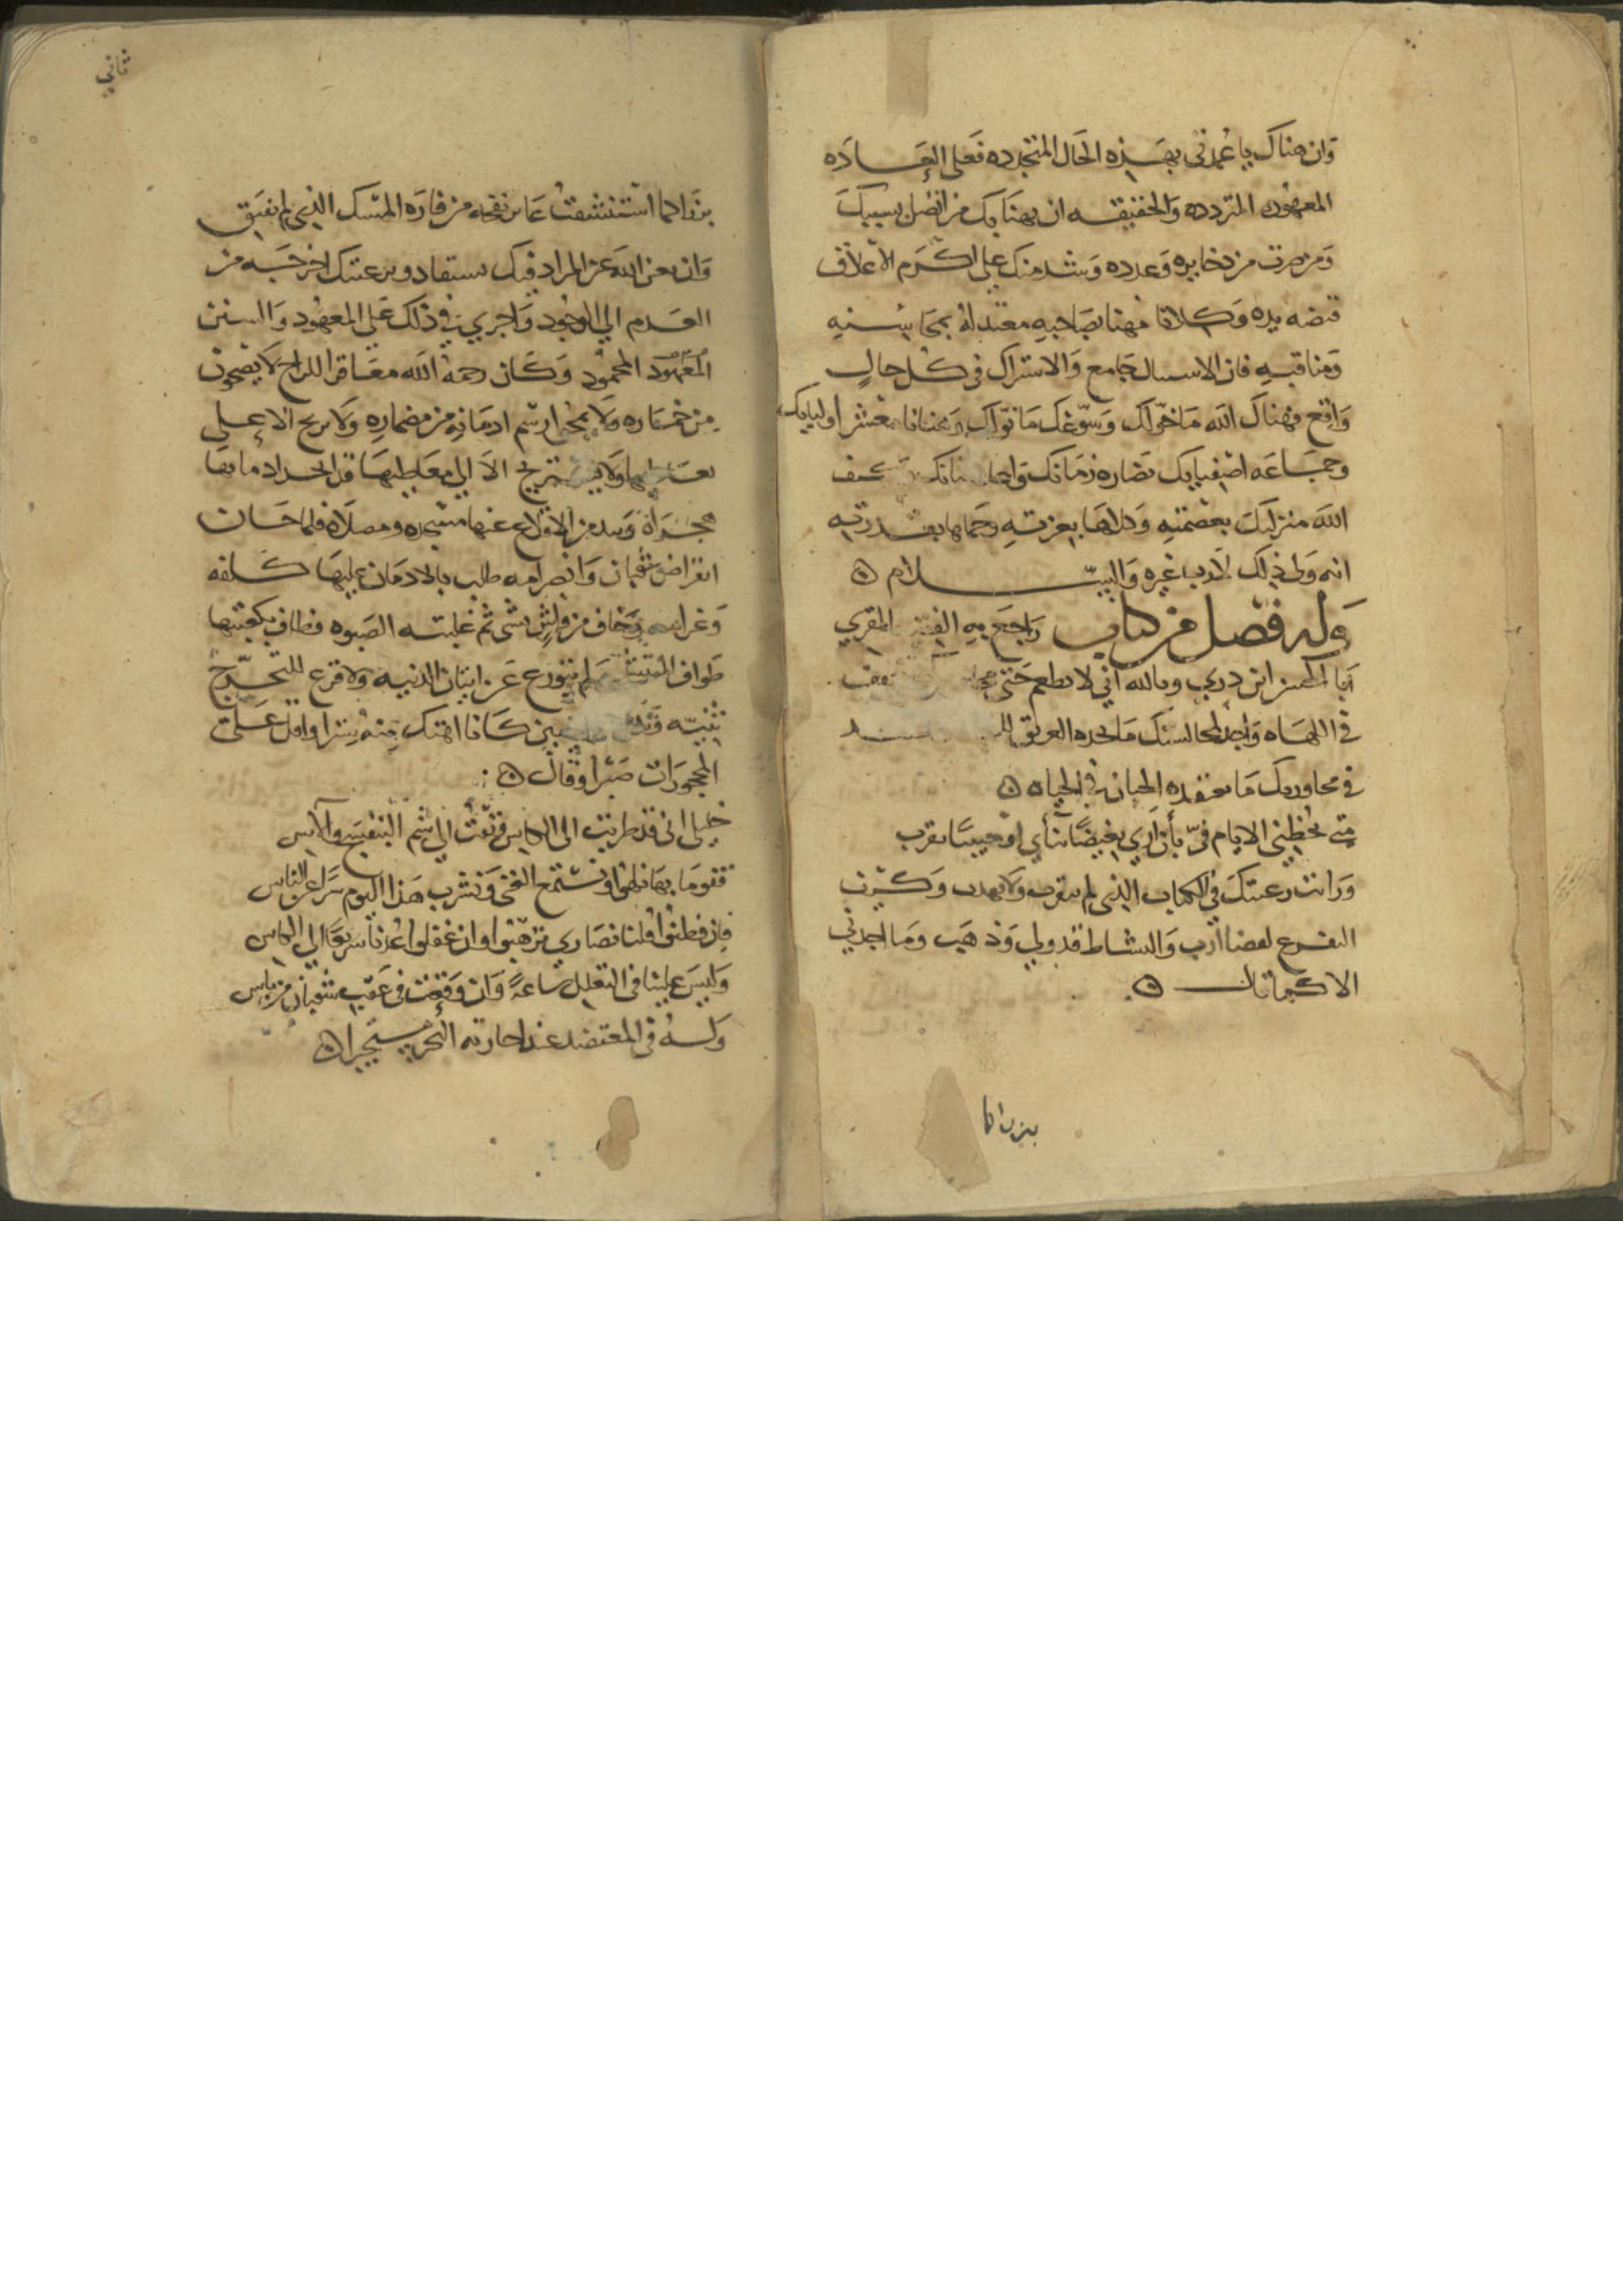 وان هناك يا عمدتي بهذه الحال المتجدده فعلى العاده
المعهوده المتردده والحقيقه ان يهنا بك من اتصل بسببك
ومن صرت من ذخايره وعدده وشد منك على اكرم الاعلاق
قبضه يده وكلانا مهنا بصاحبه معتد له بمحاسنه
ومناقبه فان الاسسال جامع والاشتراك في كل حال
واقع فهناك الله ما خولك وسوغك ما نولك ومعشر اوليايك
وجماعه اصفيايك نضاره زمانك
الله منزلك بعصمته وكلاها بعزته وحماها بقدرته
انه ولي ذلك لا رب غيره والسلام
وله فصل من كتاب راجع به المقري
ابا الحسن ابن دري وبالله اني لا تطعم
في اللهاه واجد لمجالستك ما يجده الغريق
في محاورتك ما يعتقده الجبان في الحياه
متى تخطئي الايام في بان ارى بغيضا تنأي او حبيبا تقرب
ورانت رعتك في الكتاب الذي لم تقرب ولا بعدت وكيف
التفرع لقضا ارب والنشاط قد ولى وذهب وما اجدني
الا كما قال
بزاد كما
ثاني
بزاد كما استنشقت من فاره المسك الذي لم تفتق
وان يعن الله عن المراد فيك يستفاد وبرعتك اخرجه من
العدم الى الوجود واجرى في ذلك على المعهود والسنن
المعهود المحمود وكان رحمه الله معاقرا للراح لا يصحو
من خماره ولا يمحو رسم ادمانه من مضماره ولا يريح الا على
تعاطيها ولا يستريح الا الى معاطيها قد اتخذ ادمانها
هجيراه ونبذ من الاقلاع عنها مسجده ومصلاه فلما حان
انقراض شعبان وانصرامه طلب بالادمان عليها كلفه
وغرامه ثم غلبته الصبوه فطاف بكعبتها
طواف ولم يتورع عن اتيان الدنيه ولا قرع للتحرج
ثنيه كانا اهتك منه سترا واقل على
المحجورات صبرا وقال
خليلي اني قد طربت الى الكاس وتقت الى شم البنفسج والاس
فقوما بها نلهوا ونستمع الغنى ونشرب هذا اليوم سرا عن الناس
فان فطنوا قلنا نصارى ترهبوا وان غفلوا عدنا سريعا الى الكاس
وليس علينا في التعلل ساعة وان وقعت في عقب شعبان من باس
وله في المعتضد عند اجازته البحر مستجيرا